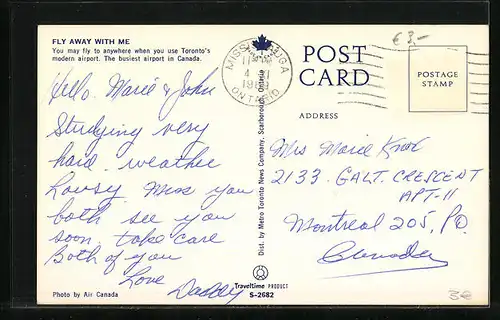 FLY AWAY WITH ME
You may fly to anywhere when you use Toronto's
modern airport. The busiest airport in Canada.
Hello. Marie & John
Studying very
hard. weather
Lousy Miss you
both see you
soon. take care
Both of you
Love
Daddy
Photo by Air Canada
Dist. by Metro Toronto News Company, Scarborough, Ontario
Traveltime PRODUCT
S-2682
MISSISSAUGA
ONTARIO
POST
CARD
ADDRESS
POSTAGE
STAMP
€3,-
Mrs Marie
2133. GALT. CRESCENT
APT-11
Montreal 205, P.Q.
Canada
3€